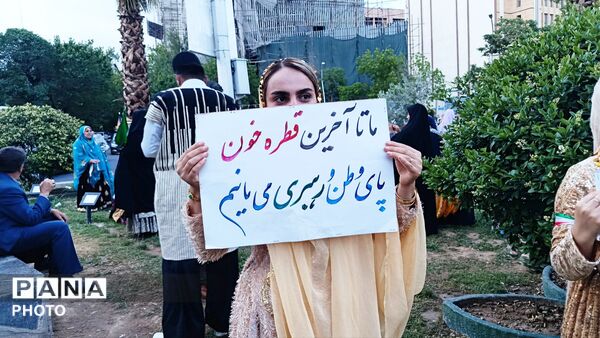 ما تا آخرین قطره خون
پای وطن و رهبری می مانیم
PANA
PHOTO